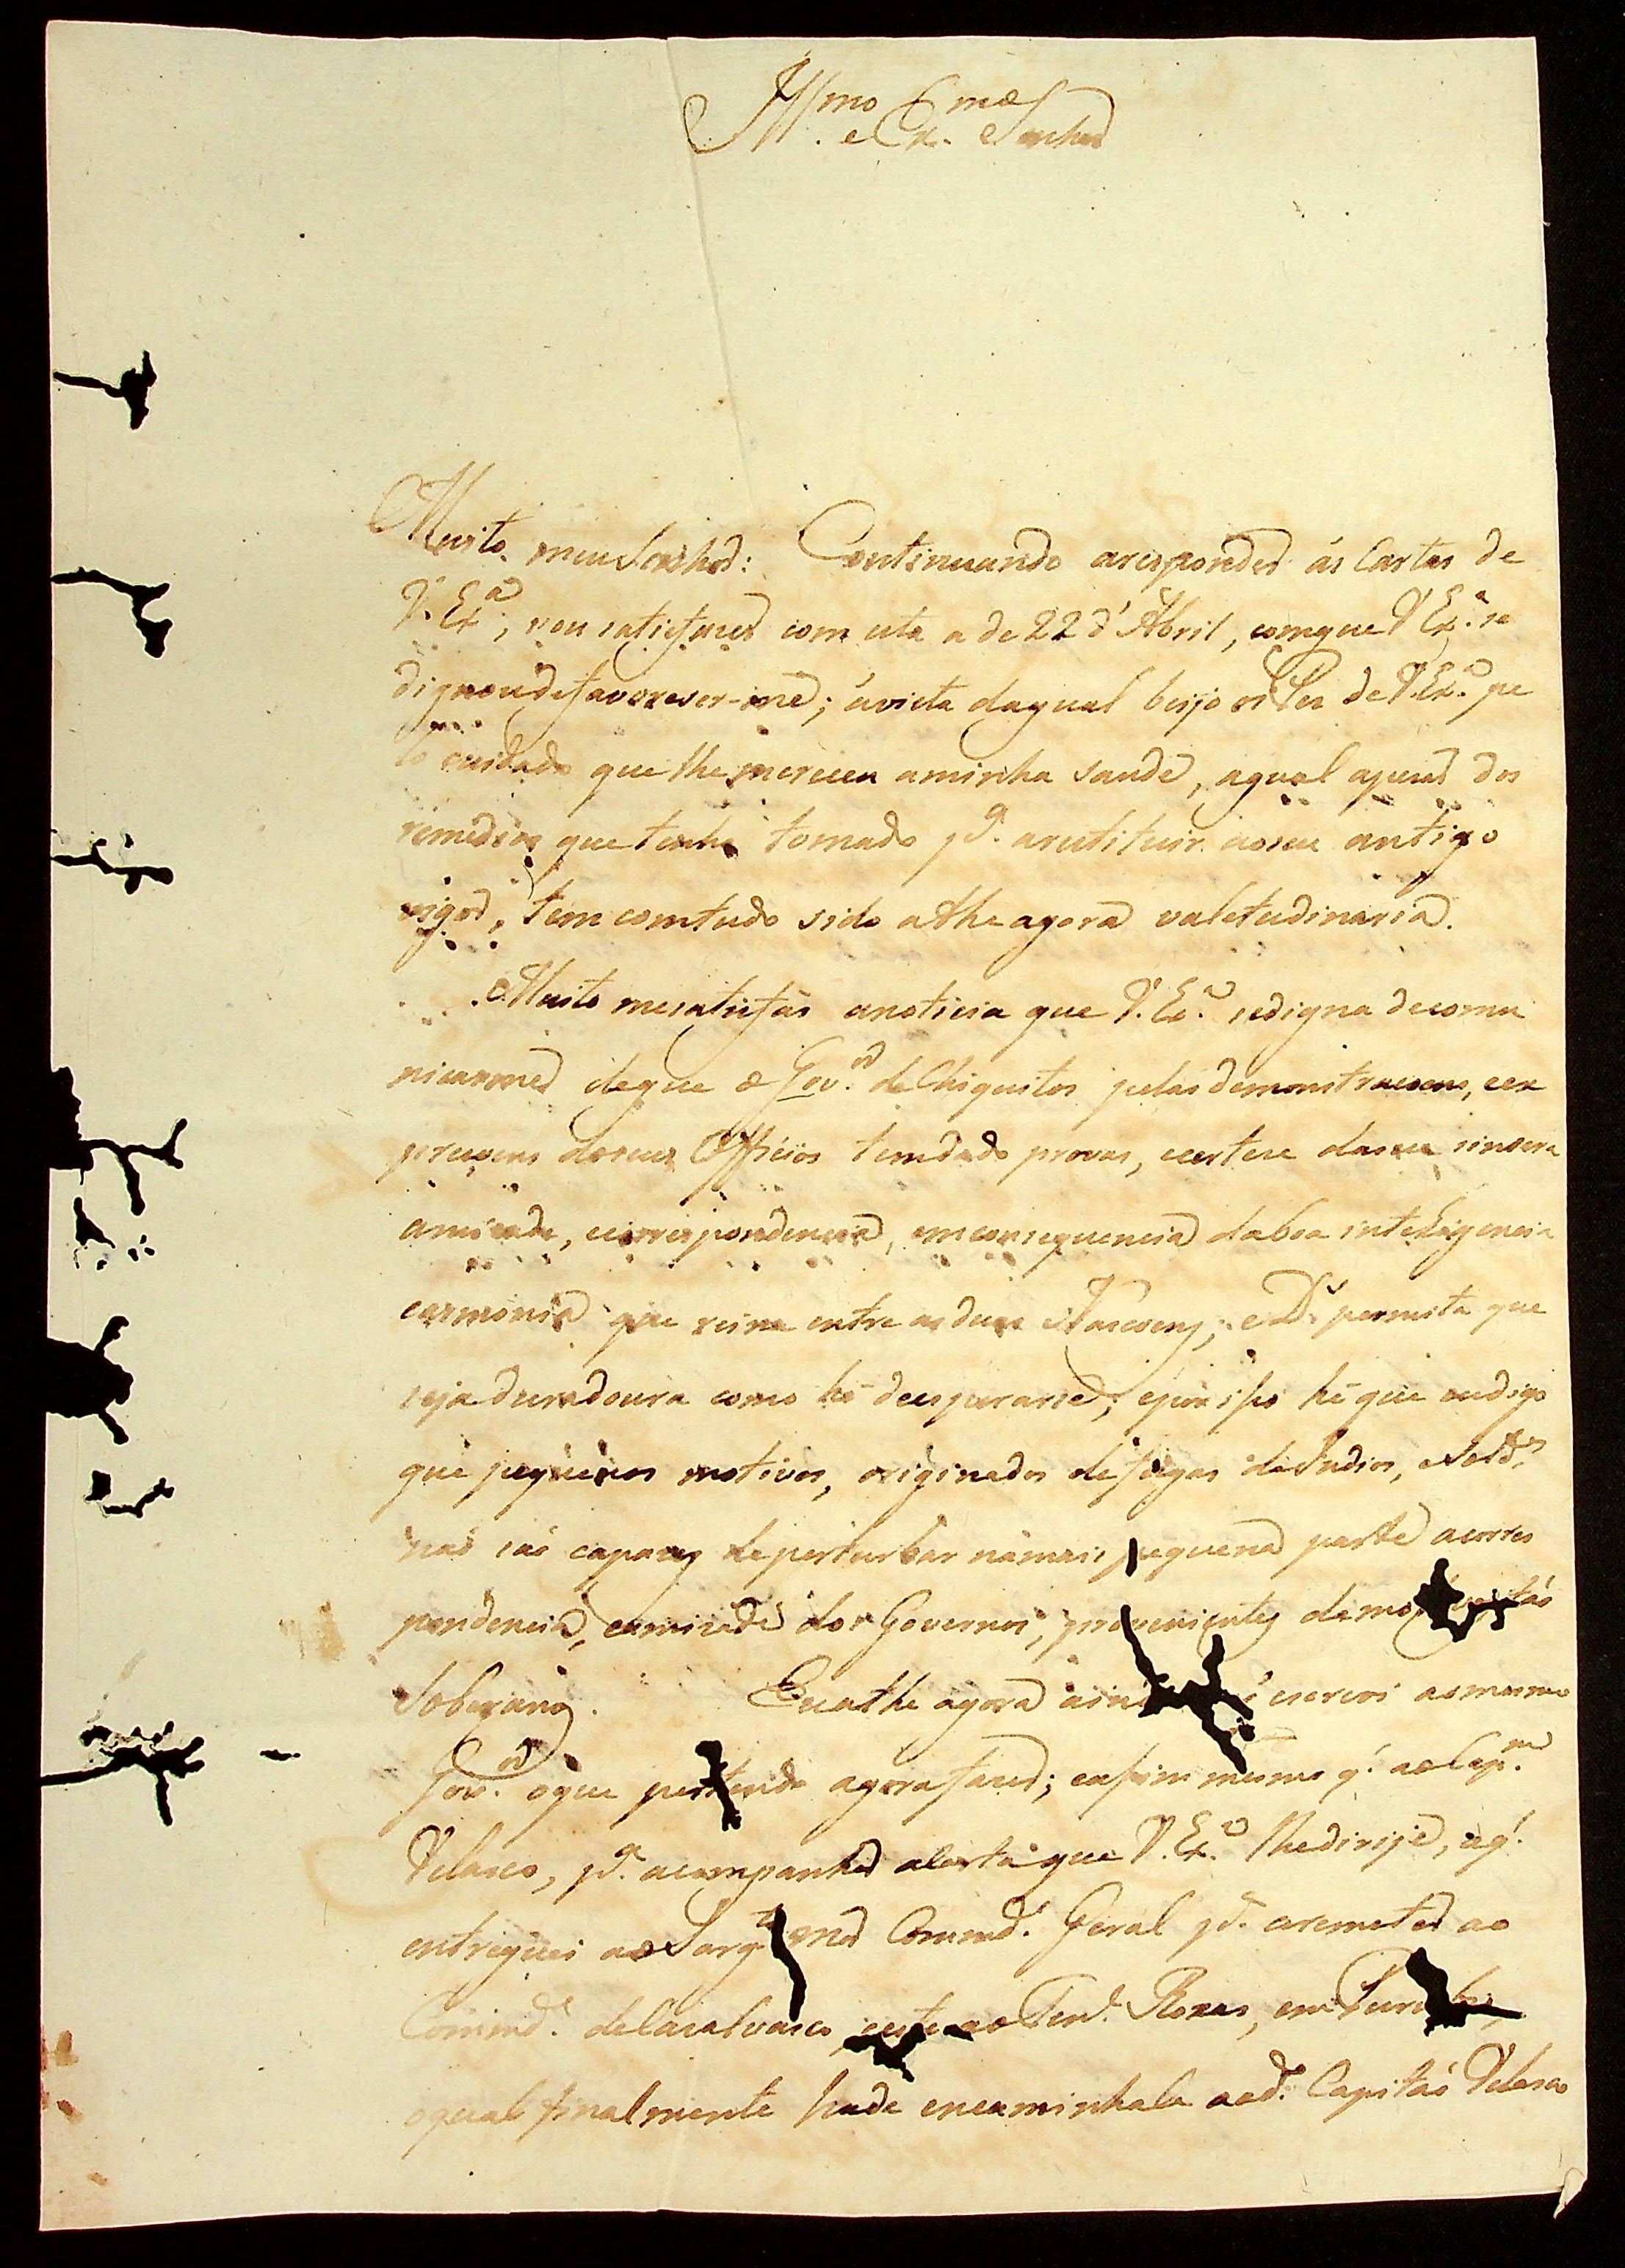 Illmo. e Exmo. Senhor
Muito meu Senhor: Continuando aresponder ás Cartas de
V. Exa., vou satisfazer com esta a de 22 d'Abril, comque V. Exa. se
dignou de favoreser-me; ávista daqual beijo os Pes de V. Exa. pe
lo cuidado que lhe mereceu aminha saude, aqual apezar dos
remedios que tenho tomado pa. arestituir aoseu antigo
vigor, tem comtudo sido athe agora valetudinaria.
Muito mesatisfás anoticia que V. Exa. sedigna decomu
nicarme deque o Govor. de Chiquitos pelas demonstracoens, eex
presoens doseus Officios temdado provas, ecerteze dasua sincera
amizade, ecorrespondencia, emconsequencia daboa inteligencia
earmonia que reina entre as duas Nascoens; e Ds. permita que
seja duradoura como hé deesperarse; epor isso hé que eudigo
que pequenos motivos, originados defugas de Indios, e Solds.
naõ saõ capazes deperturbar námais pequena parte acorres
pondencia, eamizade dos Governos, provenientes de
Soberanos. Eu athe agora escrevi aomesmo
Govor. oque pertendo agora fazer; eassim mesmo q. ao Capm.
Velasco, pa. acompanhar aCarta que V. Exa. lhedirije, eq.
entreguei ao Sargto. mor Commde. Geral pa. aremeter ao
Commde. deCasalvasco, eeste ao Tene. Rozas, em
oqual finalmente hade encaminhala aod. Capitaõ Velasco